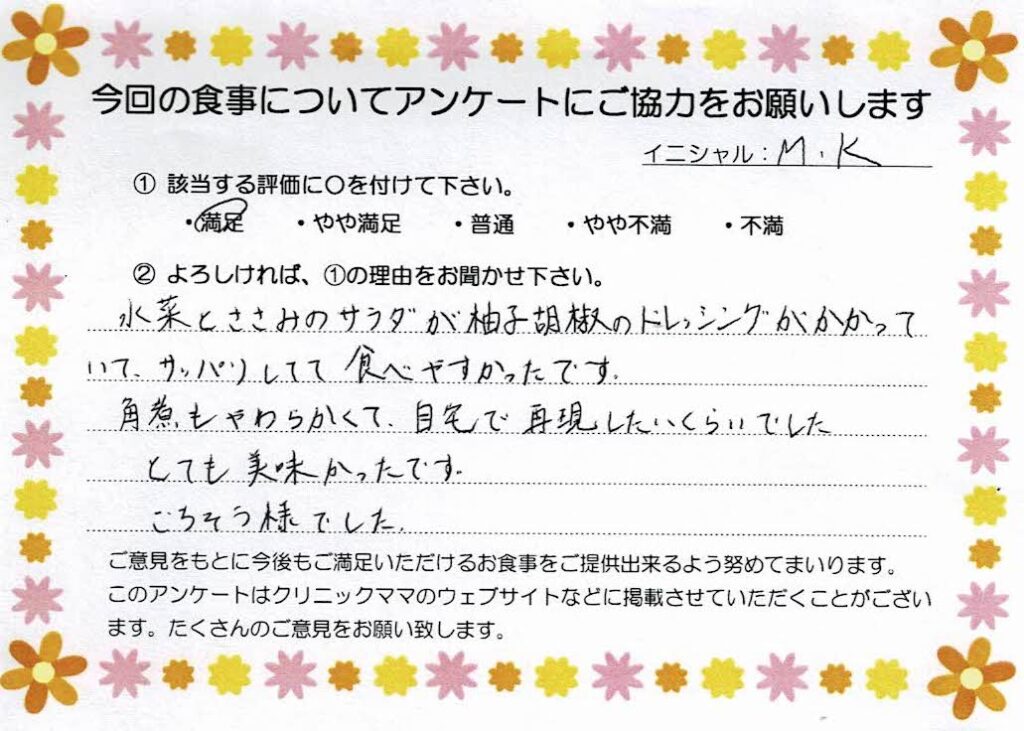 今回の食事についてアンケートにご協力をお願いします
イニシャル：M．K
① 該当する評価に〇を付けて下さい。
・満足 ・やや満足 ・普通 ・やや不満 ・不満
② よろしければ、①の理由をお聞かせ下さい。
水菜とささみのサラダが柚子胡椒のドレッシングがかかって
いて、サッパリしてて食べやすかったです。
角煮もやわらかくて、自宅で再現したいくらいでした
とても美味かったです。
ごちそう様でした。
ご意見をもとに今後もご満足いただけるお食事をご提供出来るよう努めてまいります。
このアンケートはクリニックママのウェブサイトなどに掲載させていただくことがござい
ます。たくさんのご意見をお願い致します。